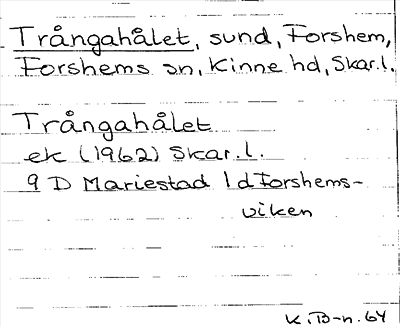 Trångahålet, sund, Forshem,
Forshems sn, Kinne hd, Skar.l.
Trångahålet
ek (1962) Skar.l.
9 D Mariestad 1d Forshems-
viken
K.B-n. 64